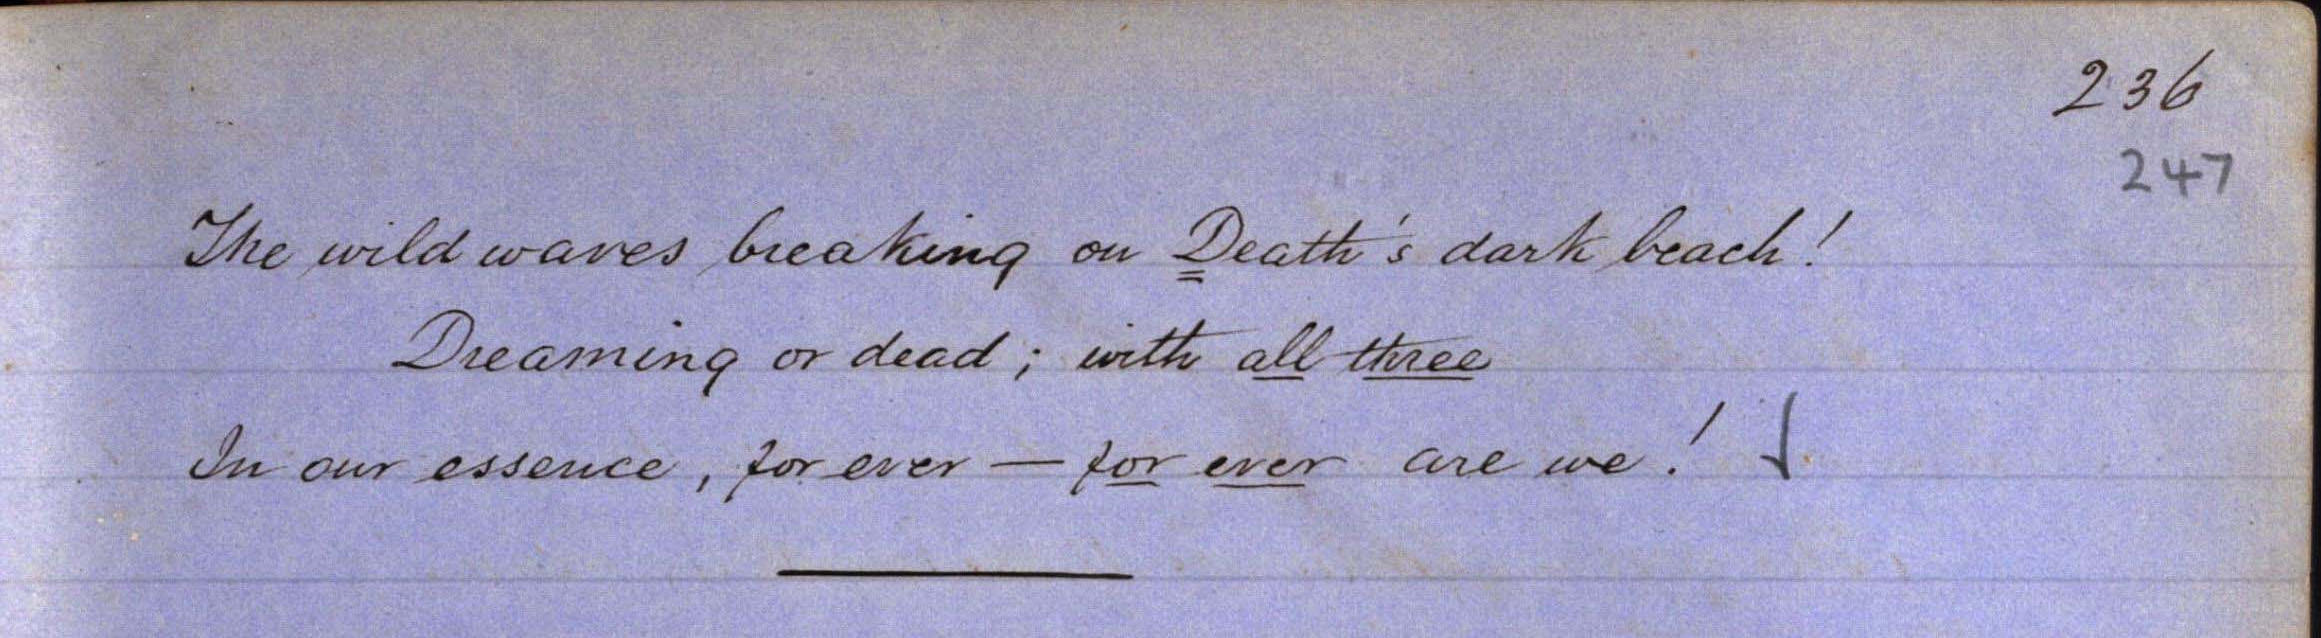 236
247
The wild waves breaking on Death's dark beach!
Dreaming or dead; with all three
In our essence, for ever — for ever are we!